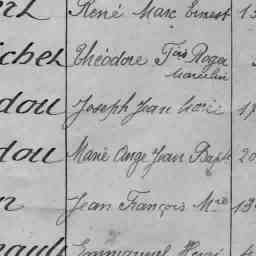 René Marc Ernest 1
ichel Théodore Fois Roger
Marcelin
dou Joseph Jean Marie 1
dou Marie Ange Jean Bapte 20
n Jean François Mie 1
Emmanuel Henri